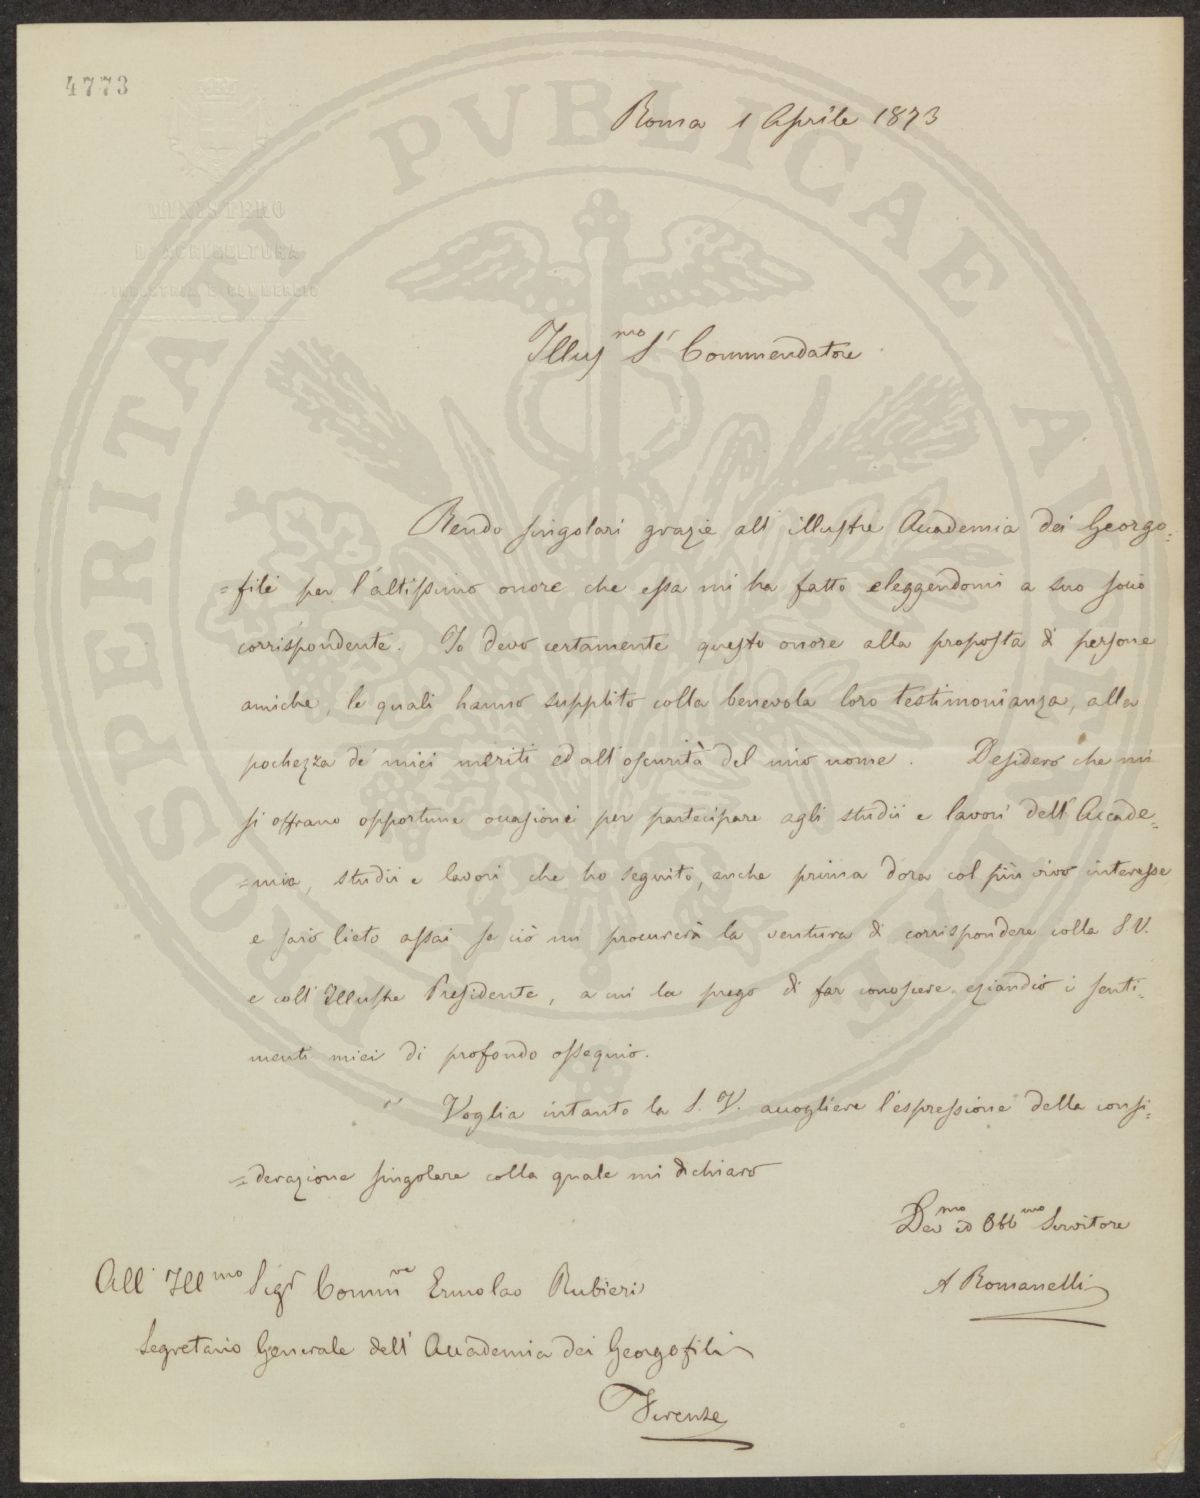 4773
Roma 1 Aprile 1873
MINISTERO
D'AGRICOLTURA
INDUSTRIA E COMMERCIO
PROSPERITATI PVBLICAE AVGENDAE
Illus.mo S.r Commendatore
Rendo singolari grazie all'illustre Accademia dei Georgo=
=fili per l'altissimo onore che essa mi ha fatto eleggendomi a suo socio
corrispondente. Io devo certamente questo onore alla proposta di persone
amiche, le quali hanno supplito colla benevola loro testimonianza, alla
pochezza de' miei meriti ed all'oscurità del mio nome. Desidero che mi
si offrano opportune occasioni per partecipare agli studii e lavori dell'Accade=
=mia, studii e lavori che ho seguito, anche prima d'ora col più vivo interesse
e sarò lieto assai se ciò mi procurerà la ventura di corrispondere colla S.V.
e coll'Illustre Presidente, a cui la prego di far conoscere eziandio i senti=
menti miei di profondo ossequio.
Voglia intanto la S. V. accogliere l'espressione della consi=
=derazione singolare colla quale mi dichiaro
Dev.mo ed Obb.mo Servitore
A Romanelli
All' Ill.mo Sig.r Comm.re Ermolao Rubieri
Segretario Generale dell'Accademia dei Georgofili
Firenze